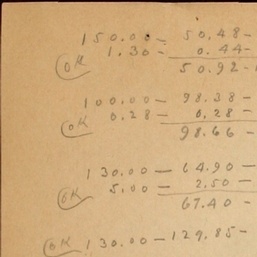 150.00 - 50.48 -
1.30 - 0.44 -
OK 50.92 -
100.00 - 98.38 -
OK 0.28 - 0.28 -
98.66 -
130.00 - 64.90 -
OK 5.00 - 2.50 -
67.40 -
OK 130.00 - 129.85 -